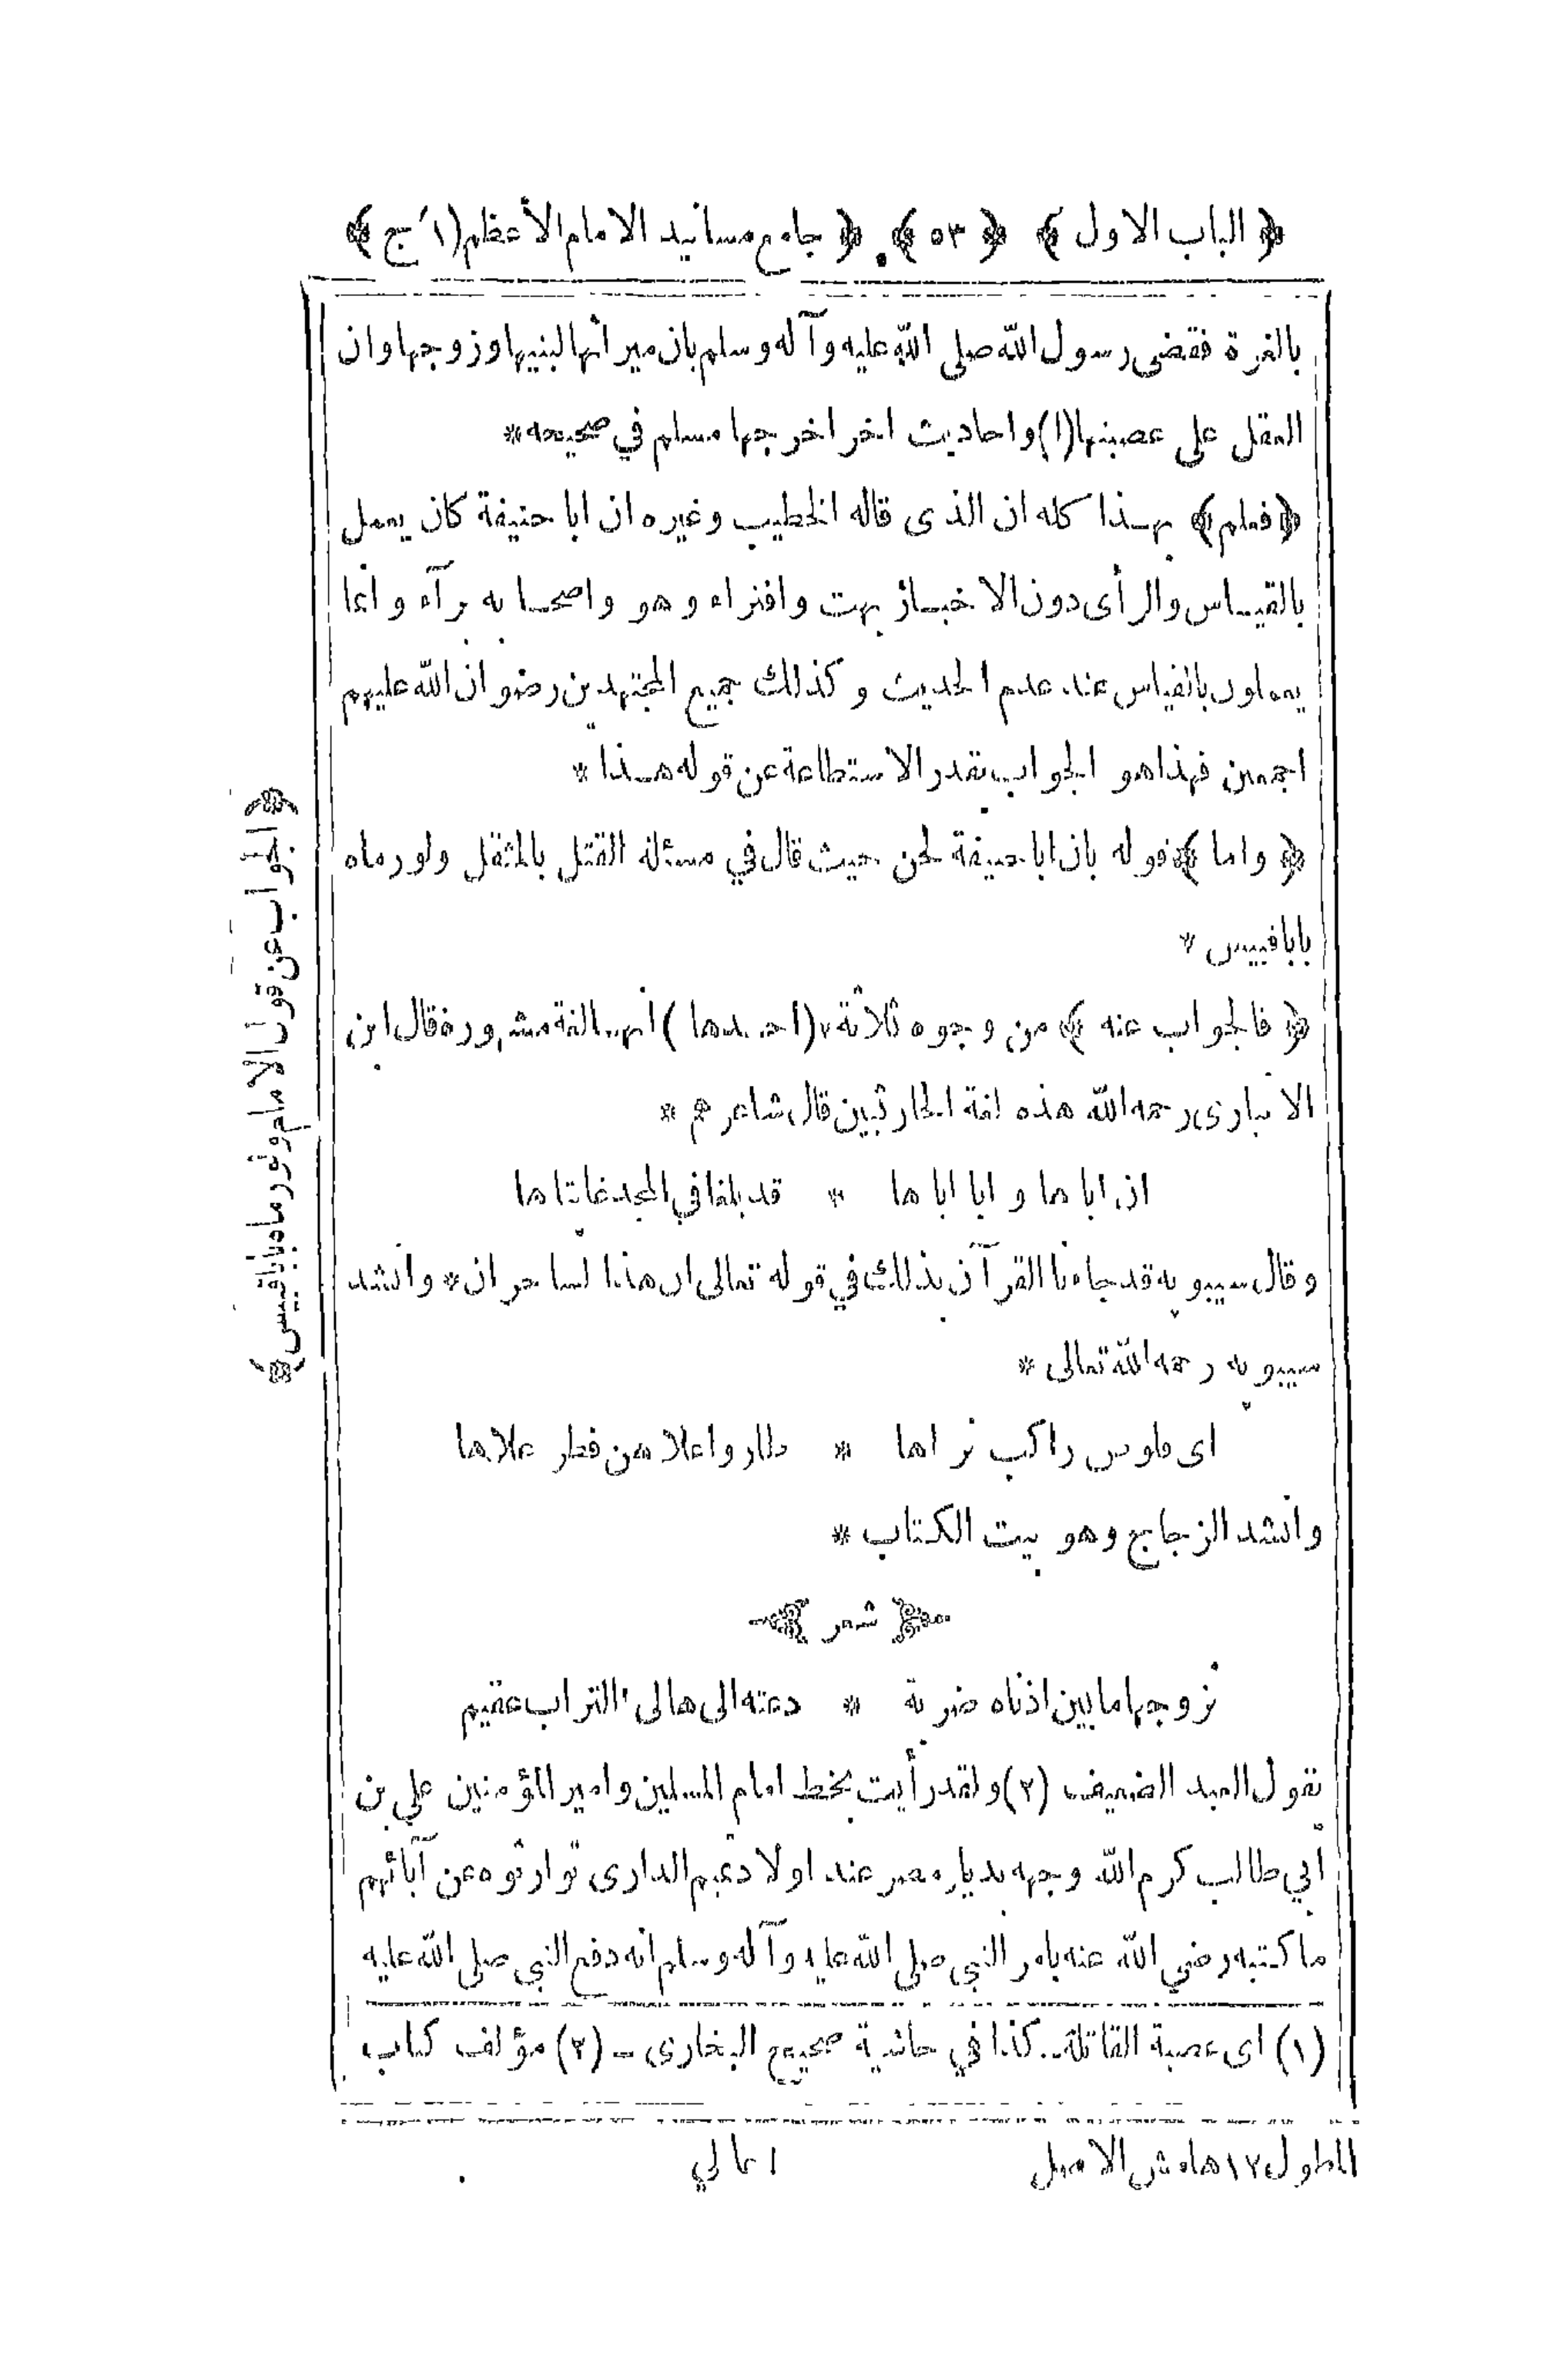 ﴿ الباب الاول ﴾ ﴿ ٥٣ ﴾ ﴿ جامع مسانيد الامام الأعظم (١ ج) ﴾
بالغرة فقضى رسول الله صلى الله عليه وآله وسلم بان ميراثها لبنيها وزوجها وان
العقل على عصبتها (١) واحاديث اخر اخرجها مسلم في صحيحه *
﴿ فعلم ﴾ بهذا كله ان الذى قاله الخطيب وغيره ان ابا حنيفة كان يعمل
بالقياس والرأى دون الاخبار بهت وافتراء وهو واصحابه برآء وانما
يعملون بالقياس عند عدم الحديث وكذلك جميع المجتهدين رضوان الله عليهم
اجمعين فهذا هو الجواب بقدر الاستطاعة عن قوله هذا *
﴿ واما ﴾ قوله بان ابا حنيفة لحن حيث قال في مسئلة القتل بالمثقل ولو رماه
بابا قبيس *
﴿ فالجواب عنه ﴾ من وجوه ثلاثة (احدها) انها لغة مشهورة قال ابن
الانبارى رحمه الله هذه لغة الحارثيين قال شاعرهم *
ان اباها وابا اباها * قد بلغا في المجد غايتاها
وقال سيبويه قد جاءنا القرآن بذلك في قوله تعالى ان هذا لساحران * وانشد
سيبويه رحمه الله تعالى *
اى قلوص راكب تراها * طاروا علاهن فطر علاها
وانشد الزجاج وهو بيت الكتاب *
شعر
تزوجها ما بين اذناه ضربة * دعته الى هالى التراب عقيم
يقول العبد الضعيف (٢) ولقد رأيت بخط امام المسلمين وامير المؤمنين علي بن
أبي طالب كرم الله وجهه بديار مصر عند اولاد تميم الدارى توارثوه عن آبائهم
ما كتبه رضي الله عنه بامر النبي صلى الله عليه وآله وسلم انه دفع النبي صلى الله عليه
(١) اى عصبة القاتلة ـ كذا في حاشية صحيح البخارى ـ (٢) مؤلف كتاب
المطول ١٢ هامش الاصل
﴿ الجواب عن قول الامام ولو رماه بابا قبيس ﴾